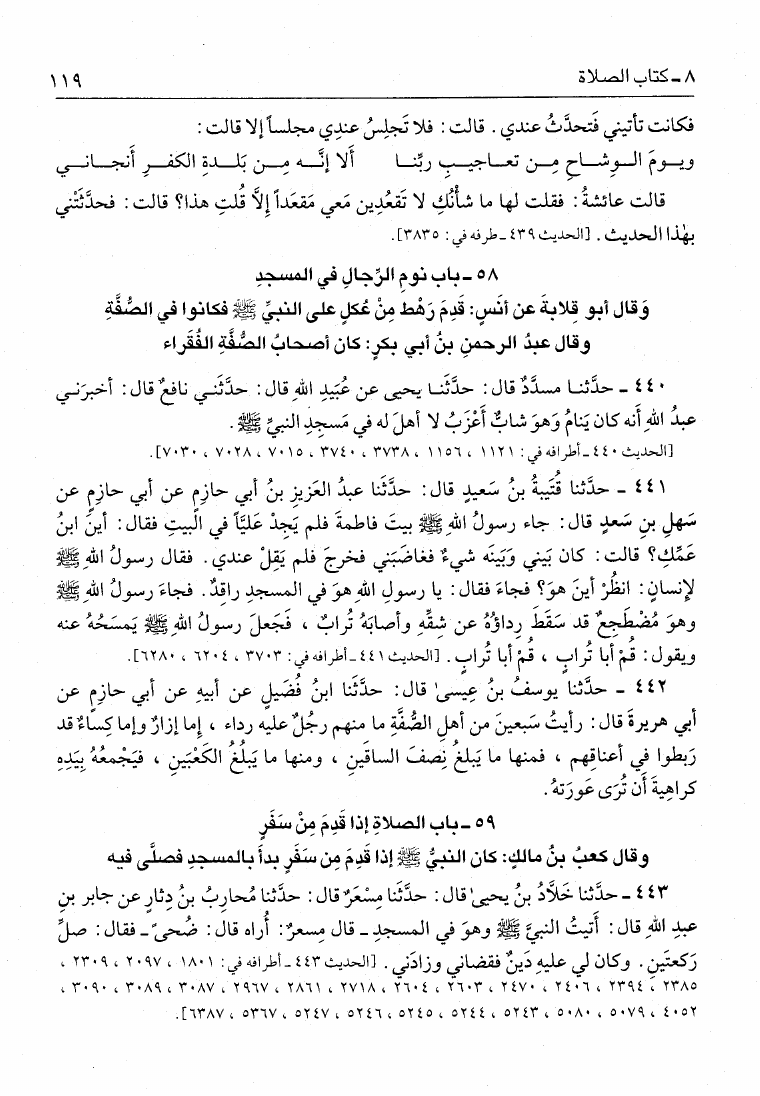 ٨ ـ كتاب الصلاة ١١٩
فكانت تأتيني فَتحدَّثُ عندي. قالت: فلا تَجلِسُ عندِي مجلساً إلا قالت:
ويـومَ الـوِشـاحِ مِـن تعـاجيـبِ ربِّنـا ألا إنَّـه مِـن بَلـدةِ الكفـرِ أنجـانـي
قالت عائشةُ: فقلت لها ما شأنُكِ لا تَقعُدِين مَعي مَقعَداً إلاَّ قُلتِ هذا؟ قالت: فحدَّثَتْني
بهٰذا الحديث. [الحديث ٤٣٩ ـ طرفه في: ٣٨٣٥].
٥٨ ـ باب نومِ الرِّجالِ في المسجدِ
وَقال أبو قِلابةَ عن أنَسٍ: قَدِمَ رَهْط مِنْ عُكلٍ على النبيِّ ﷺ فكانوا في الصُّفَّةِ
وقال عبدُ الرحمنِ بنُ أبي بكرٍ: كان أصحابُ الصُّفَّةِ الفُقَراء
٤٤٠ ـ حدَّثنـا مسدَّدٌ قال: حدَّثَنـا يحيى عن عُبَيدِ اللهِ قال: حدَّثَنـي نافعٌ قال: أخبرَنـي
عبدُ اللهِ أنه كان يَنامُ وَهوَ شابٌّ أَعْزَبُ لا أهلَ له في مَسجِدِ النبيِّ ﷺ.
[الحديث ٤٤٠ ـ أطرافه في: ١١٢١ ، ١١٥٦ ، ٣٧٣٨ ، ٣٧٤٠ ، ٧٠١٥ ، ٧٠٢٨ ، ٧٠٣٠].
٤٤١ ـ حدَّثنا قُتَيبةُ بنُ سَعيدٍ قال: حدَّثَنا عبدُ العَزيزِ بنُ أبي حازِمٍ عن أبي حازِمٍ عن
سَهلِ بنِ سَعدٍ قال: جاء رسولُ اللهِ ﷺ بيتَ فاطمةَ فلم يَجِدْ عَليَّاً في البيتِ فقال: أينَ ابنُ
عَمِّكِ؟ قالت: كان بَيني وَبَينَه شيءٌ فغاضَبَني فخرجَ فلم يَقِلْ عندي. فقال رسولُ اللهِ ﷺ
لإنسانٍ: انظُرْ أينَ هوَ؟ فجاءَ فقال: يا رسولَ اللهِ هوَ في المسجدِ راقِدٌ. فجاءَ رسولُ اللهِ ﷺ
وهوَ مُضْطَجِعٌ قد سَقَطَ رِداؤُهُ عن شِقِّهِ وأصابَهُ تُرابٌ ، فَجَعلَ رسولُ اللهِ ﷺ يَمسَحُهُ عنه
ويقول: قُمْ أبا تُرابٍ ، قُمْ أبا تُرابٍ. [الحديث ٤٤١ ـ أطرافه في: ٣٧٠٣ ، ٦٢٠٤ ، ٦٢٨٠].
٤٤٢ ـ حدَّثنا يوسفُ بنُ عِيسىٰ قال: حدَّثَنا ابنُ فُضَيلٍ عن أبيهِ عن أبي حازِمٍ عن
أبي هريرةَ قال: رأيتُ سَبعينَ من أهلِ الصُّفَّةِ ما منهم رجُلٌ عليه رداء ، إما إزارٌ وإما كِساءٌ قد
رَبطوا في أعناقِهم ، فمنها ما يَبلغُ نِصفَ الساقَينِ ، ومنها ما يَبلُغُ الكَعْبَينِ ، فيَجْمعُهُ بيَدِهِ
كراهِيةَ أن تُرَى عَورَتهُ.
٥٩ ـ باب الصلاةِ إذا قَدِمَ مِنْ سَفَرٍ
وقال كعبُ بنُ مالكٍ: كان النبيُّ ﷺ إذا قَدِمَ مِن سَفَرٍ بدأَ بالمسجدِ فصلَّى فيه
٤٤٣ ـ حدَّثنا خَلاَّدُ بنُ يحيىٰ قال: حدَّثَنا مِسْعَرٌ قال: حدَّثنا مُحارِبُ بنُ دِثارٍ عن جابرِ بنِ
عبدِ اللهِ قال: أَتيتُ النبيَّ ﷺ وهوَ في المسجدِ ـ قال مِسعرٌ: أُراه قال: ضُحىً ـ فقال: صلِّ
رَكعتَينِ. وكان لي عليهِ دَينٌ فقضاني وزادَني. [الحديث ٤٤٣ ـ أطرافه في: ١٨٠١ ، ٢٠٩٧ ، ٢٣٠٩ ،
٢٣٨٥ ، ٢٣٩٤ ، ٢٤٠٦ ، ٢٤٧٠ ، ٢٦٠٣ ، ٢٦٠٤ ، ٢٧١٨ ، ٢٨٦١ ، ٢٩٦٧ ، ٣٠٨٧ ، ٣٠٨٩ ، ٣٠٩٠ ،
٤٠٥٢ ، ٥٠٧٩ ، ٥٠٨٠ ، ٥٢٤٣ ، ٥٢٤٤ ، ٥٢٤٥ ، ٥٢٤٦ ، ٥٢٤٧ ، ٥٣٦٧ ، ٦٣٨٧].